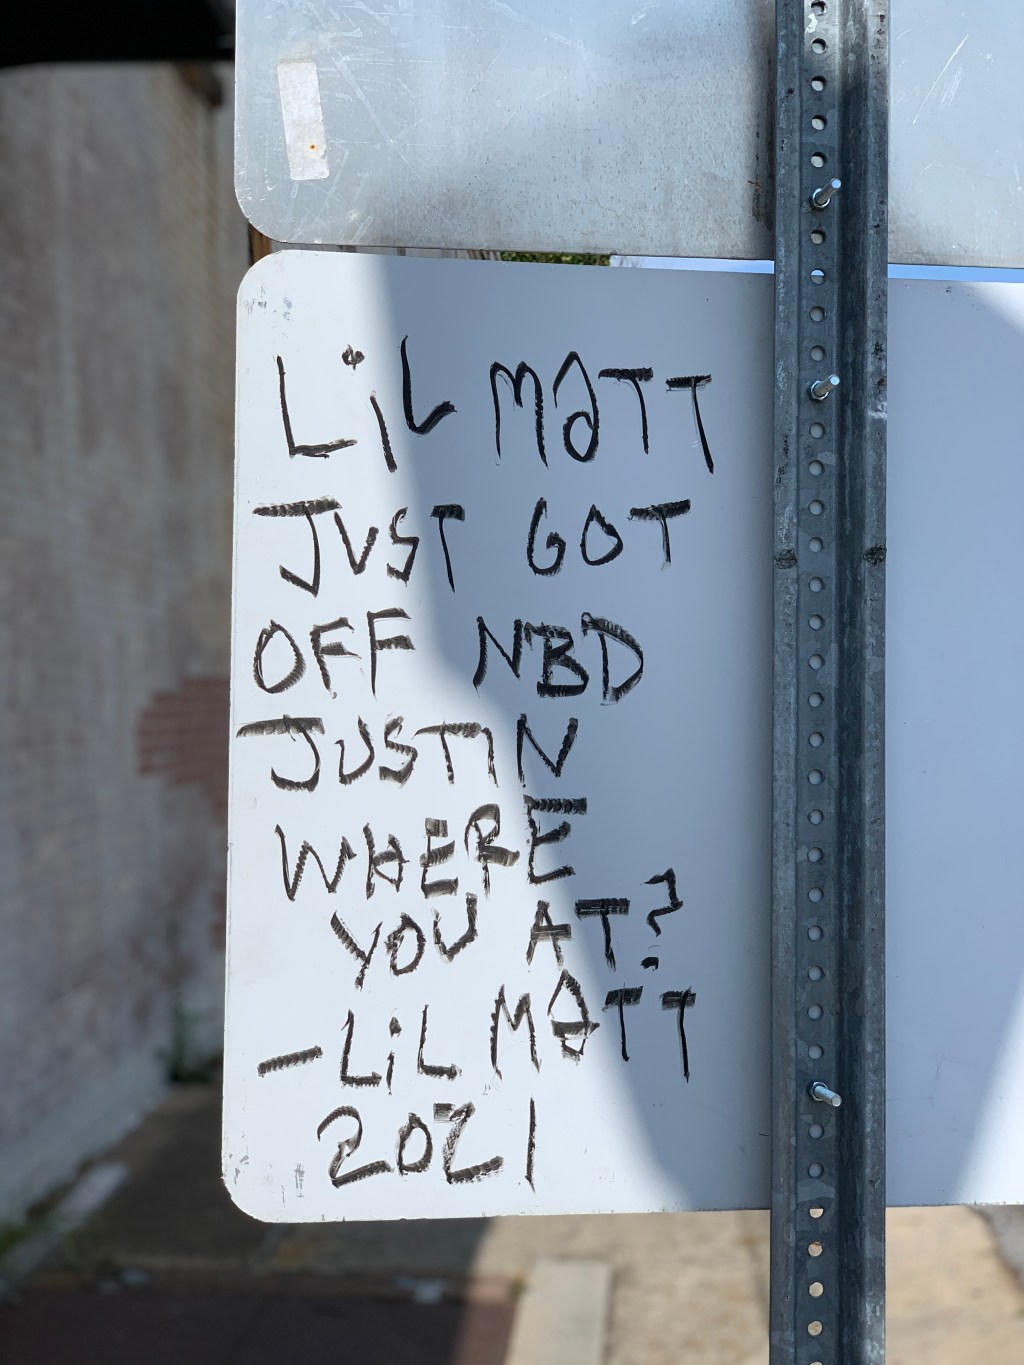 LiL MATT
JUST GOT
OFF NBD
JUSTIN
WHERE
YOU AT?
-LiL MATT
2021